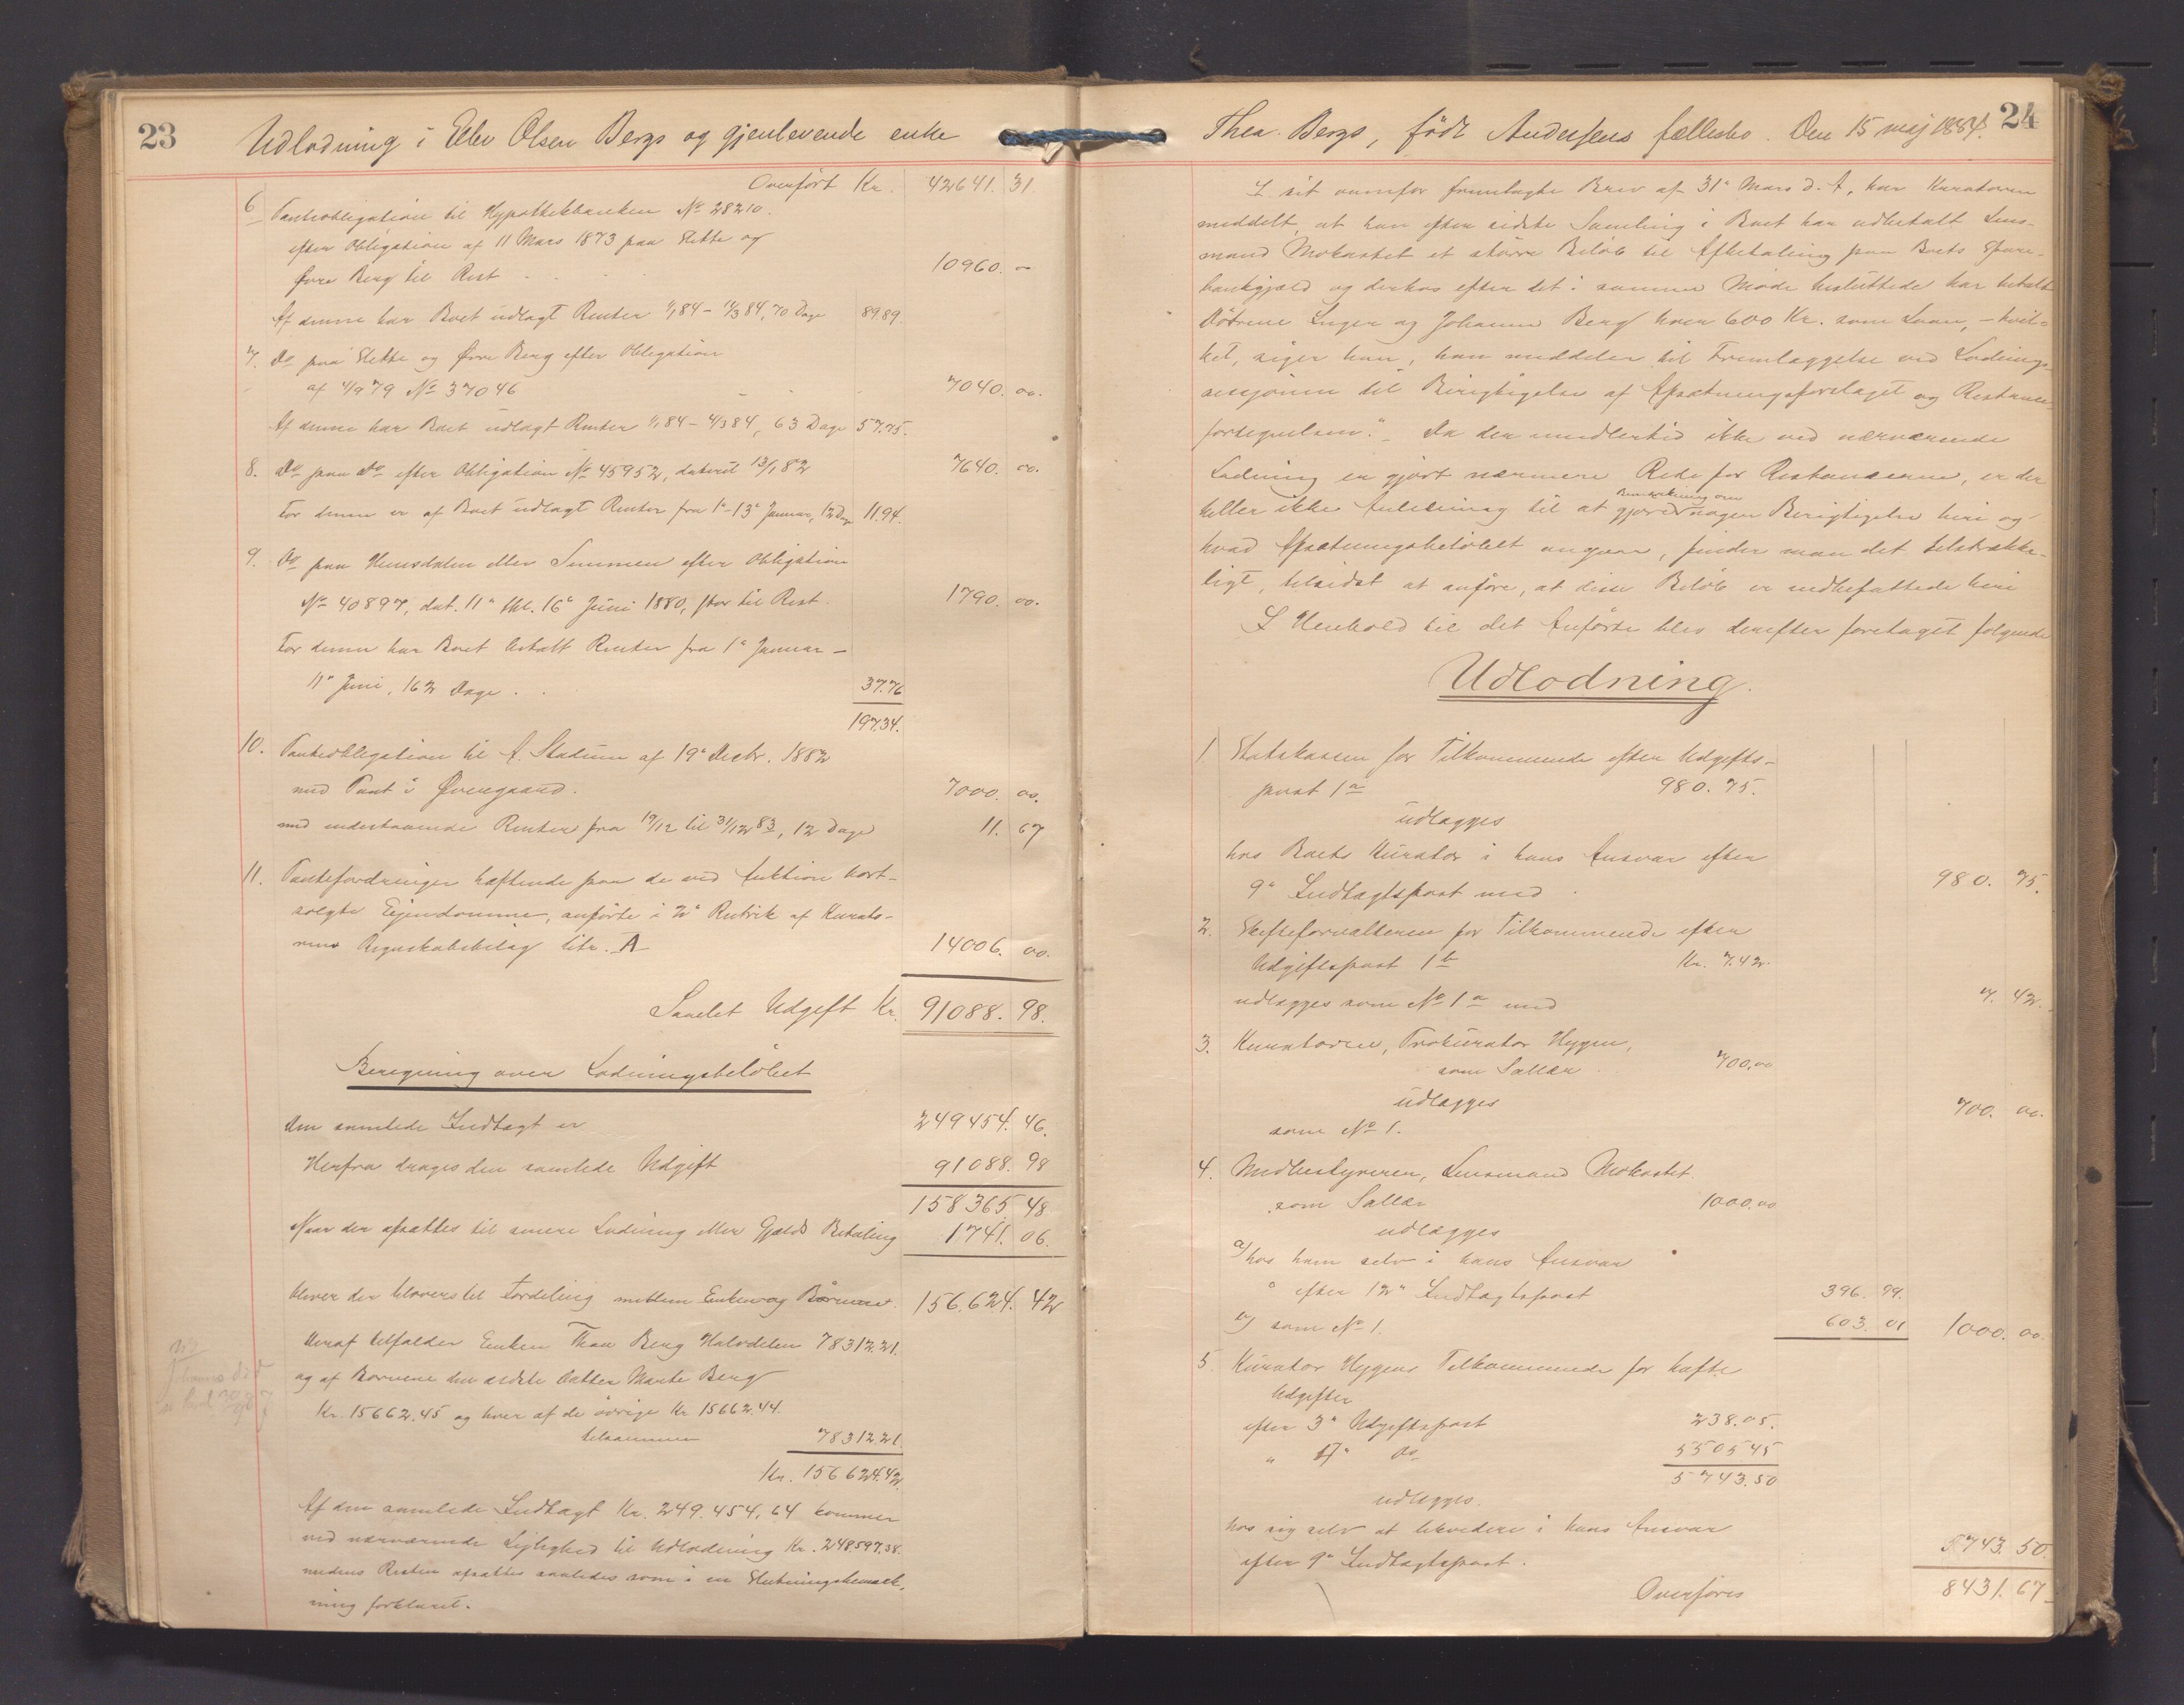 23
Udlodning i Elev Olsen Bergs og gjenlevende enke
Overført Kr. 42641. 31.
6 Panteobligation til Hypothekbanken No 28210.
efter Obligation af 11 Mars 1873 paa Slette og
Øvre Berg til Rest 10960. "
Af denne har Boet udlagt Renter 1/1 84 - 11/3 84, 70 Dage 89.89.
7. Do paa Slette og Øvre Berg efter Obligation
af 4/9 79 No 37046 7040. oo.
Af denne har Boet udlagt Renter 1/1 84 - 4/3 84, 63 Dage 57.75.
8. Do paa do efter Obligation No 45952, dateret 13/1 82 7640. oo.
For denne er af Boet udlagt Renter fra 1e-13e Januar, 12 Dage 11.94.
9. Do paa Hemsdalen eller Semmen efter Obligation
No 40897, dat. 11e thl. 16e Juni 1880, stor til Rest. 1790. oo.
For denne har Boet betalt Renter fra 1e Januar -
11e Juni, 162 Dage . . 37.76
197.34.
10. Panteobligation til A. Stadum af 19e Decbr. 1882
med Pant i Øvregaard. 7000. oo.
med indestaaende Renter fra 19/12 til 31/12 83, 12 Dage 11. 67
11. Pantefordringer hæftende paa de ved Auktion bort-
solgte Ejendomme, anførte i 2e Rubrik af Kurato-
rens Regnskabsbilag litr. A 14006. oo.
Samlet Udgift Kr. 91088. 98.
Beregning over Lodningsbeløbet
Den samlede Indtægt er 249454. 46.
Herfra drages den samlede Udgift 91088. 98
158365. 48
Naar der afsættes til senere Lodning eller Gjælds Betaling 1741. 06.
bliver der tilovers til Fordeling mellem Enken og Børnene. 156.624. 42
Heraf tilfalder Enken Thea Berg Halvdelen 78312.21.
og af Børnene den ældste Datter Marte Berg
Kr. 15662.45 og hver af de øvrige Kr 15662.44.
tilsammen 78312.21.
Kr. 156624.42.
Af den samlede Indtægt Kr. 249.454,64 kommer
ved nærværende Lejlighed til Udlodning Kr. 248.597.38.
medens Resten afsættes saaledes som i en Slutningsbemærk-
ning forklaret.
24
Thea Bergs, født Andersens fællesbo. Den 15 maj 1884.
I sit ovenfor fremlagte Brev af 31e Mars d. A, har Kuratoren
meddelt, at han efter sidste Samling i Boet har udbetalt Lens-
mand Mokastet et større Beløb til Afbetaling paa Boets Spare-
bankgjæld og derhos efter det i samme Møde besluttede har betalt
Døtrene Inger og Johanne Berg hver 600 Kr. som Laan, - hvil-
ket, siger han, han meddeler til Fremlæggelse ved Lodnings-
sessionen til Berigtigelse af Afsætningsforslaget og Restance-
fortegnelsen." - Da der imidlertid ikke ved nærværende
Lodning er gjort nærmere Rede for Restancerne, er der
heller ikke Anledning til at gjøre Bemærkning om nogen Berigtigelse heri og
hvad Afsætningsbeløbet angaar, finder man det tilstrække-
ligt, tilsidst at anføre, at disse Beløb er medbefattede heri
I Henhold til det Anførte blev derefter foretaget følgende
Udlodning.
1. Statskassen for Tilkommende efter Udgifts-
post 1a 980. 75.
udlægges
hos Boets Kurator i hans Ansvar efter
9e Indtægtspost med 980. 75.
2. Skifteforvalteren for Tilkommende efter
Udgiftspost 1b Kr. 7.42.
udlægges som No 1a med 7. 42.
3. Kuratoren, Prokurator Hygen,
som Sallær 700.oo
udlægges
som No 1. 700. oo.
4. Medbestyreren, Lensmand Mokastet
som Sallær 1000.oo
udlægges
a) hos ham selv i hans Ansvar
efter 12e Indtægtspost 396. 99.
b) som No 1. 603. 01 1000. oo.
5. Kurator Hygens Tilkommende for hafte
Udgifter
efter 3e Udgiftspost 238.05.
" 4e do 5505 45
5743.50
udlægges.
hos sig selv at likvidere i hans Ansvar
efter 9e Indtægtspost. 5743. 50.
Overføres 8431. 67